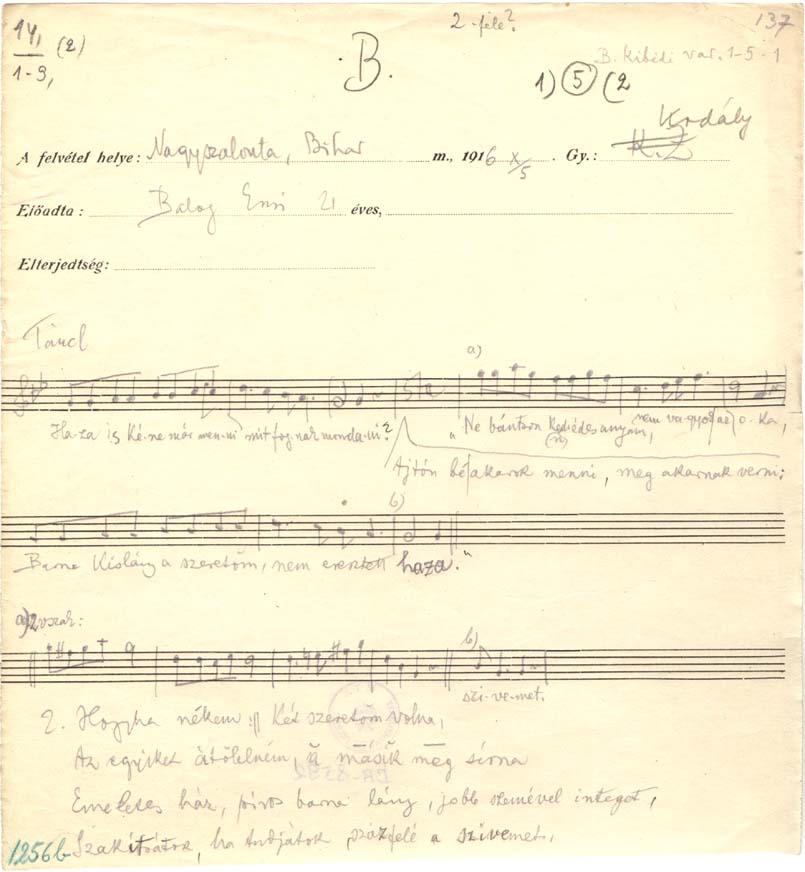 14, (2) 2-féle? 137
1-9,
B. B. Kibédi var. 1-5-1
1) 5 (2
Kodály
A felvétel helye: Nagyszalonta, Bihar m., 1916 X/5. Gy.: K.Z
Előadta: Balog Ensi 21 éves,
Elterjedtség:
Táncl
a)
Ha-za is ké-ne már men-ni mit fog-nak monda-ni? "Ne bántson kedves édes anyám, nem va-gyok az o-ka,
Ajtón bé akarok menni, meg akarnak verni;
b)
Barna kislány a szeretőm, nem eresztett haza."
a) 2 vszak: b)
szi-ve-met.
2. Hogyha nékem :|| Két szeretőm volna,
Az egyiket átölelném, a másik meg sírna
Emeletes ház, piros barna lány, jobb szemével integet,
1256b Szakítsátok, ha tudjátok, százfelé a szivemet.